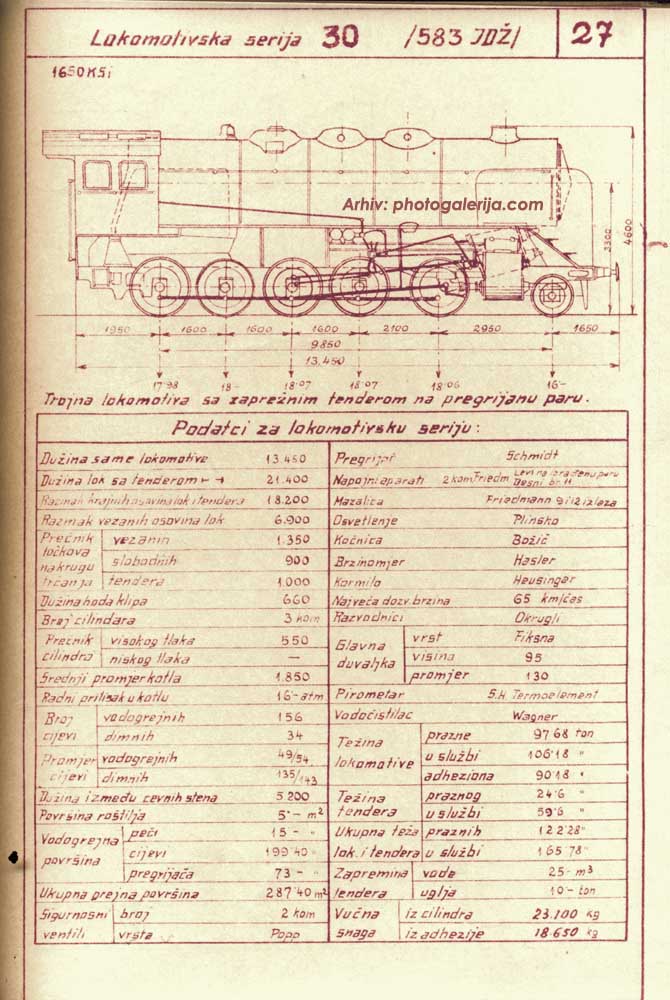 Lokomotivska serija 30 /583 JDŽ/ 27
1650KSi
Arhiv: photogalerija.com
3300
4600
1950 1600 1600 1600 2100 2950 1650
9850
13.450
17·98 18- 18·07 18·07 18·06 16-
Trojna lokomotiva sa zaprežnim tenderom na pregrijanu paru.
Podatci za lokomotivsku seriju:
Dužina same lokomotive 13.450
Dužina lok sa tenderom 21.400
Razmak krajnih osovina lok i tendera 18.200
Razmak vezanih osovina lok. 6.900
Prečnik točkova na krugu trčanja
vezanih 1.350
slobodnih 900
tendera 1.000
Dužina hoda klipa 660
Broj cilindara 3 kom
Prečnik cilindra
visokog tlaka 550
niskog tlaka —
Srednji promjer kotla 1.850
Radni pritisak u kotlu 16- atm
Broj cijevi
vodogrejnih 156
dimnih 34
Promjer cijevi
vodogrejnih 49/54
dimnih 135/143
Dužina između cevnih stena 5.200
Površina roštilja 5·- m²
Vodogrejna površina
peći 15 - "
cijevi 199·40 "
pregrijača 73 - "
Ukupna grejna površina 287·40 m²
Sigurnosni ventili
broj 2 kom
vrsta Popp
Pregrijač Schmidt
Napojni aparati 2 kom Friedm. Levi na izrađenu paru
Desni br. 11
Mazalica Friedmann 9 i 12 izleza
Osvetlenje Plinsko
Kočnica Božič
Brzinomjer Hasler
Kormilo Heusinger
Najveća dozv. brzina 65 km/čas
Razvodnici Okrugli
Glavna duvaljka
vrst Fiksna
visina 95
promjer 130
Pirometar S.H. Termoelement
Vodočistilac Wagner
Težina lokomotive
prazne 97·68 ton
u službi 106·18 "
adheziona 90·18 "
Težina tendera
praznog 24·6 "
u službi 59·6 "
Ukupna teža lok. i tendera
praznih 122·28 "
u službi 165·78 "
Zapremina tendera
vode 25- m³
uglja 10- ton
Vučna snaga
iz cilindra 23.100 kg
iz adhezije 18.650 kg